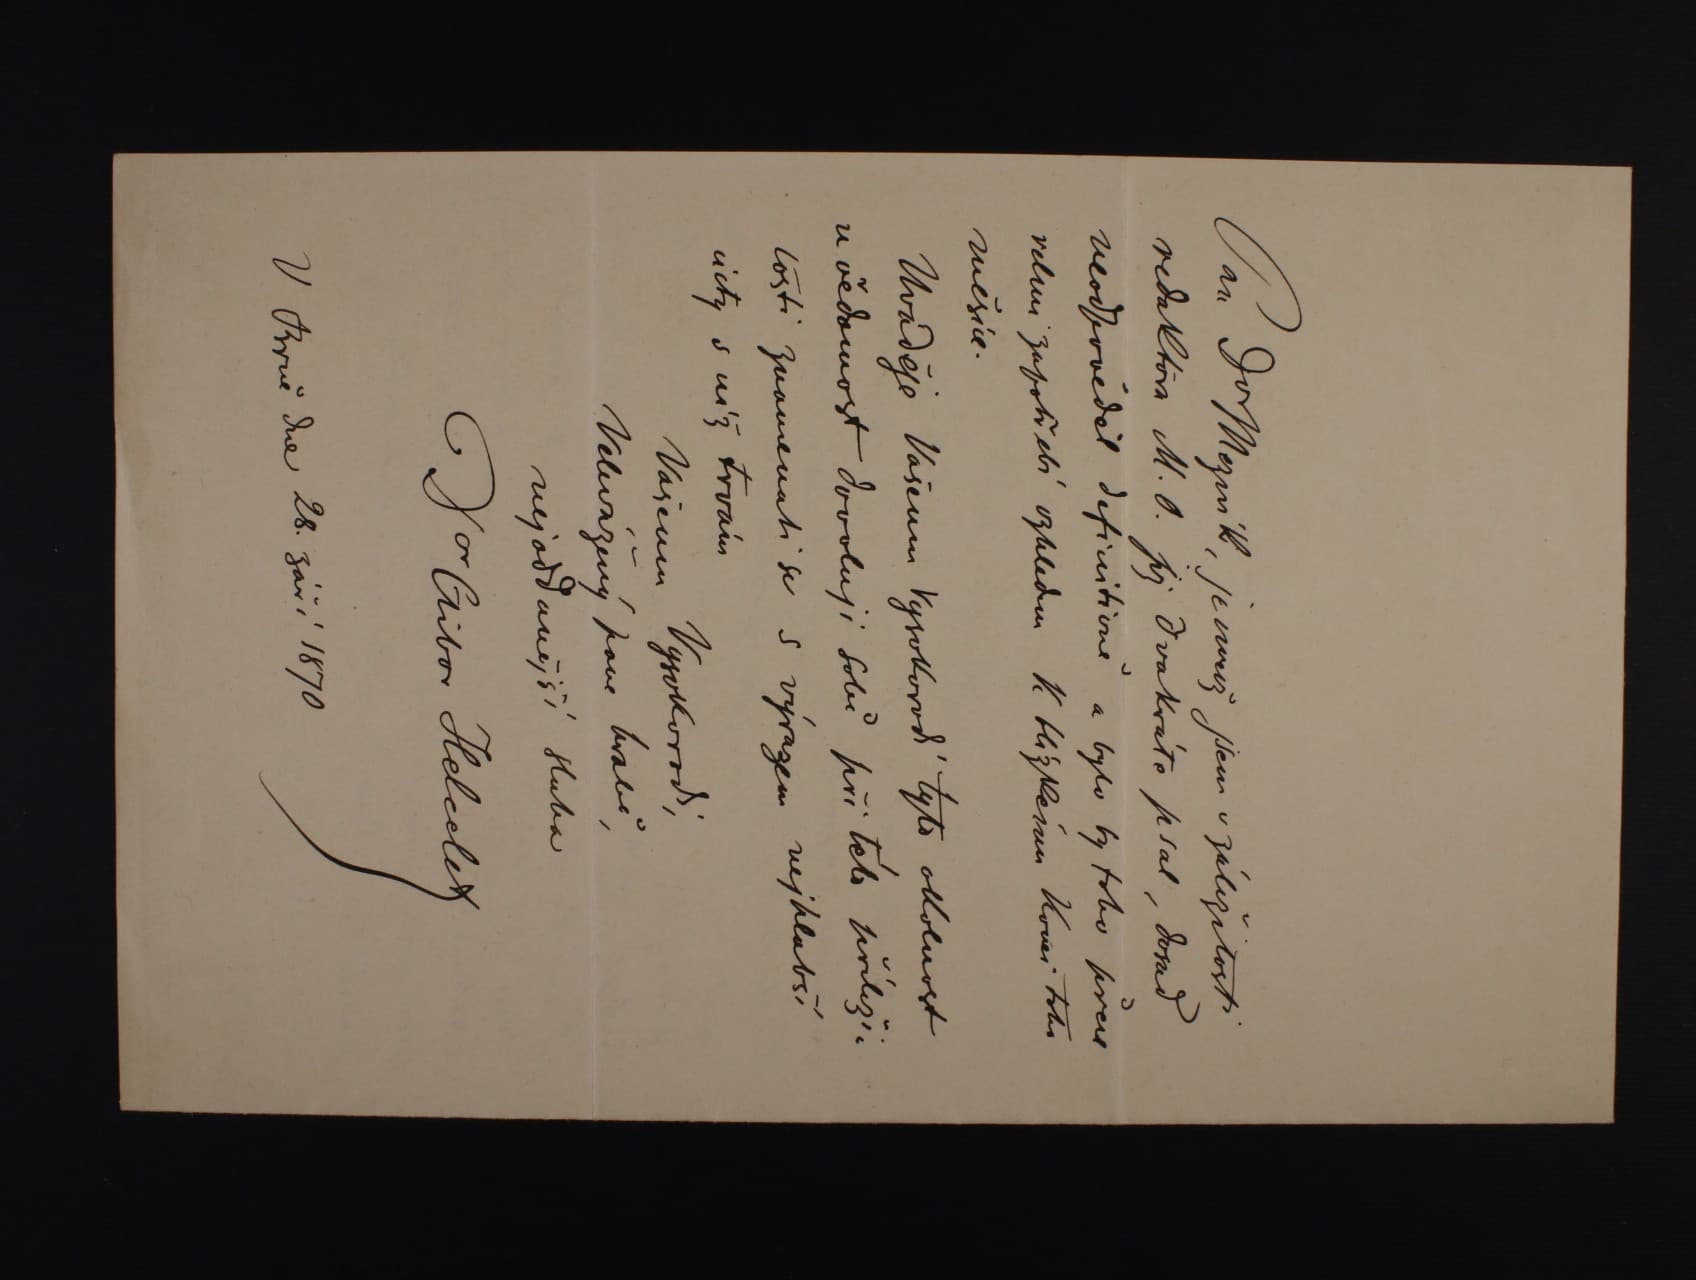 Pan Dor Mezník, jemuž jsem v záležitosti
redaktora M. O. již dvakráte psal, dosud
neodpověděl definitivně a bylo by toho přece
velmi zapotřebí vzhledem k blízkému konci toho
měsíce.
Uváděje Vašemu Vysokorodí tyto okolnost
u vědomost dovoluji sobě při této příleži-
tosti znamenati se s výrazem nejhlubší
úcty s níž trvám
Vašemu Vysokorodí,
Velevážený pane hrabě,
nejoddanější sluha
Dor Ctibor Helcelet
V Brně dne 28. září 1870